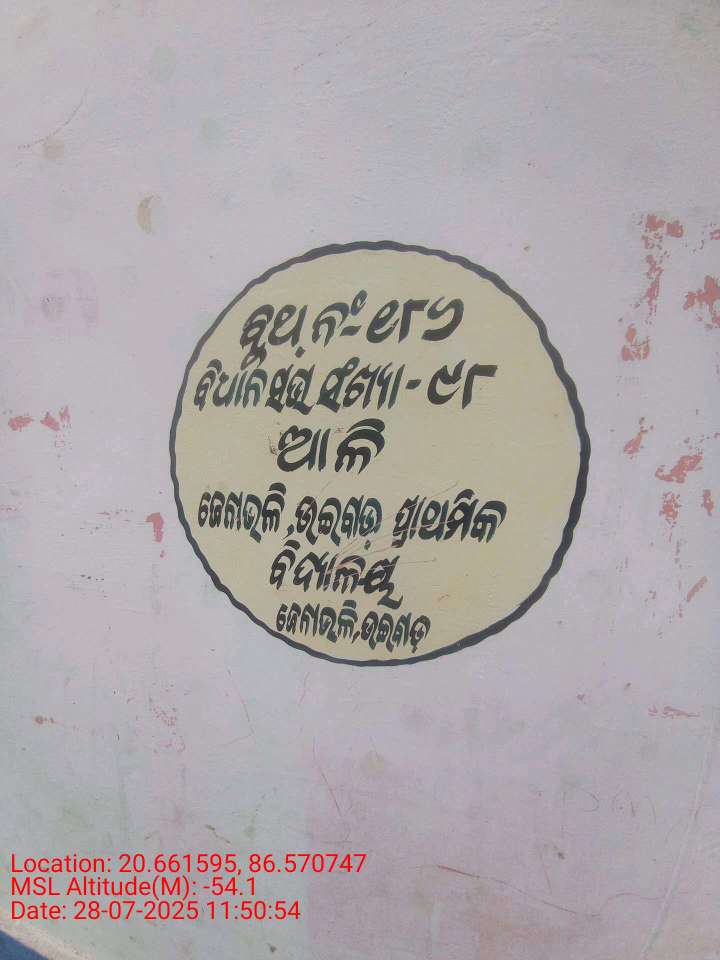 ବୁଥ୍ ନଂ-୧୮୬
ବିଧାନସଭା ସଂଖ୍ୟା-୯୮
ଆଳି
ପ୍ରାଥମିକ
ବିଦ୍ୟାଳୟ
Location: 20.661595, 86.570747
MSL Altitude(M): -54.1
Date: 28-07-2025 11:50:54